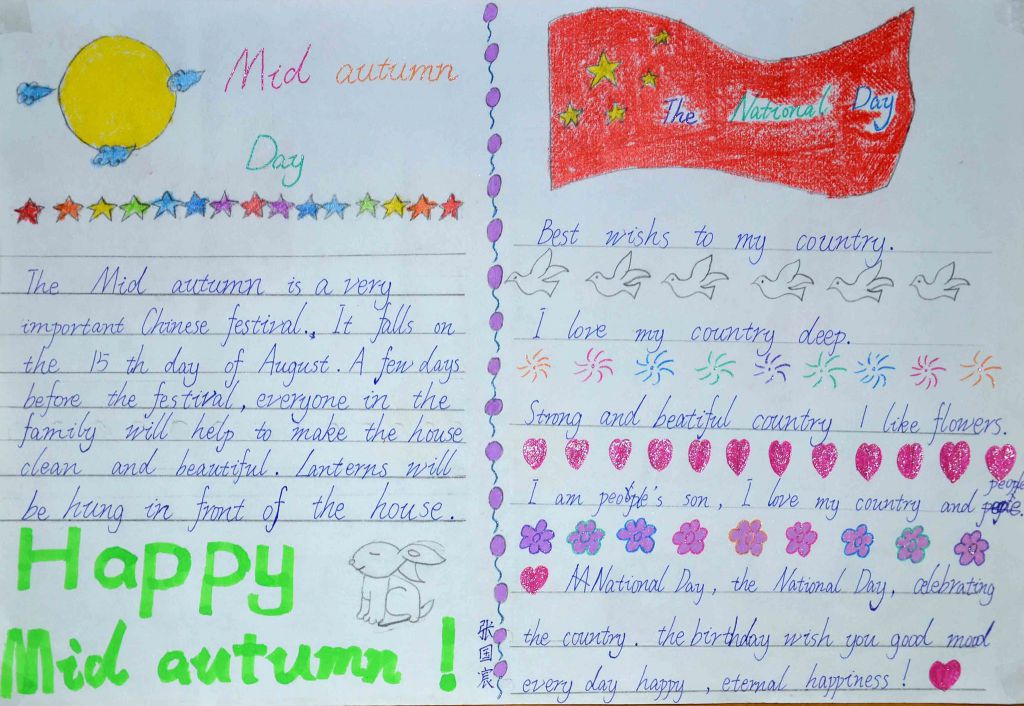 Mid autumn
Day
The Mid autumn is a very
important Chinese festival., It falls on
the 15 th day of August. A few days
before the festival, everyone in the
family will help to make the house
clean and beautiful. Lanterns will
be hung in front of the house.
Happy
Mid autumn !
The National Day
Best wishs to my country.
I love my country deep.
Strong and beatiful country I like flowers.
I am people's son, I love my country and people.
AA National Day, the National Day, celebrating
the country. the birthday wish you good mood
every day happy, eternal happiness!
张国宸